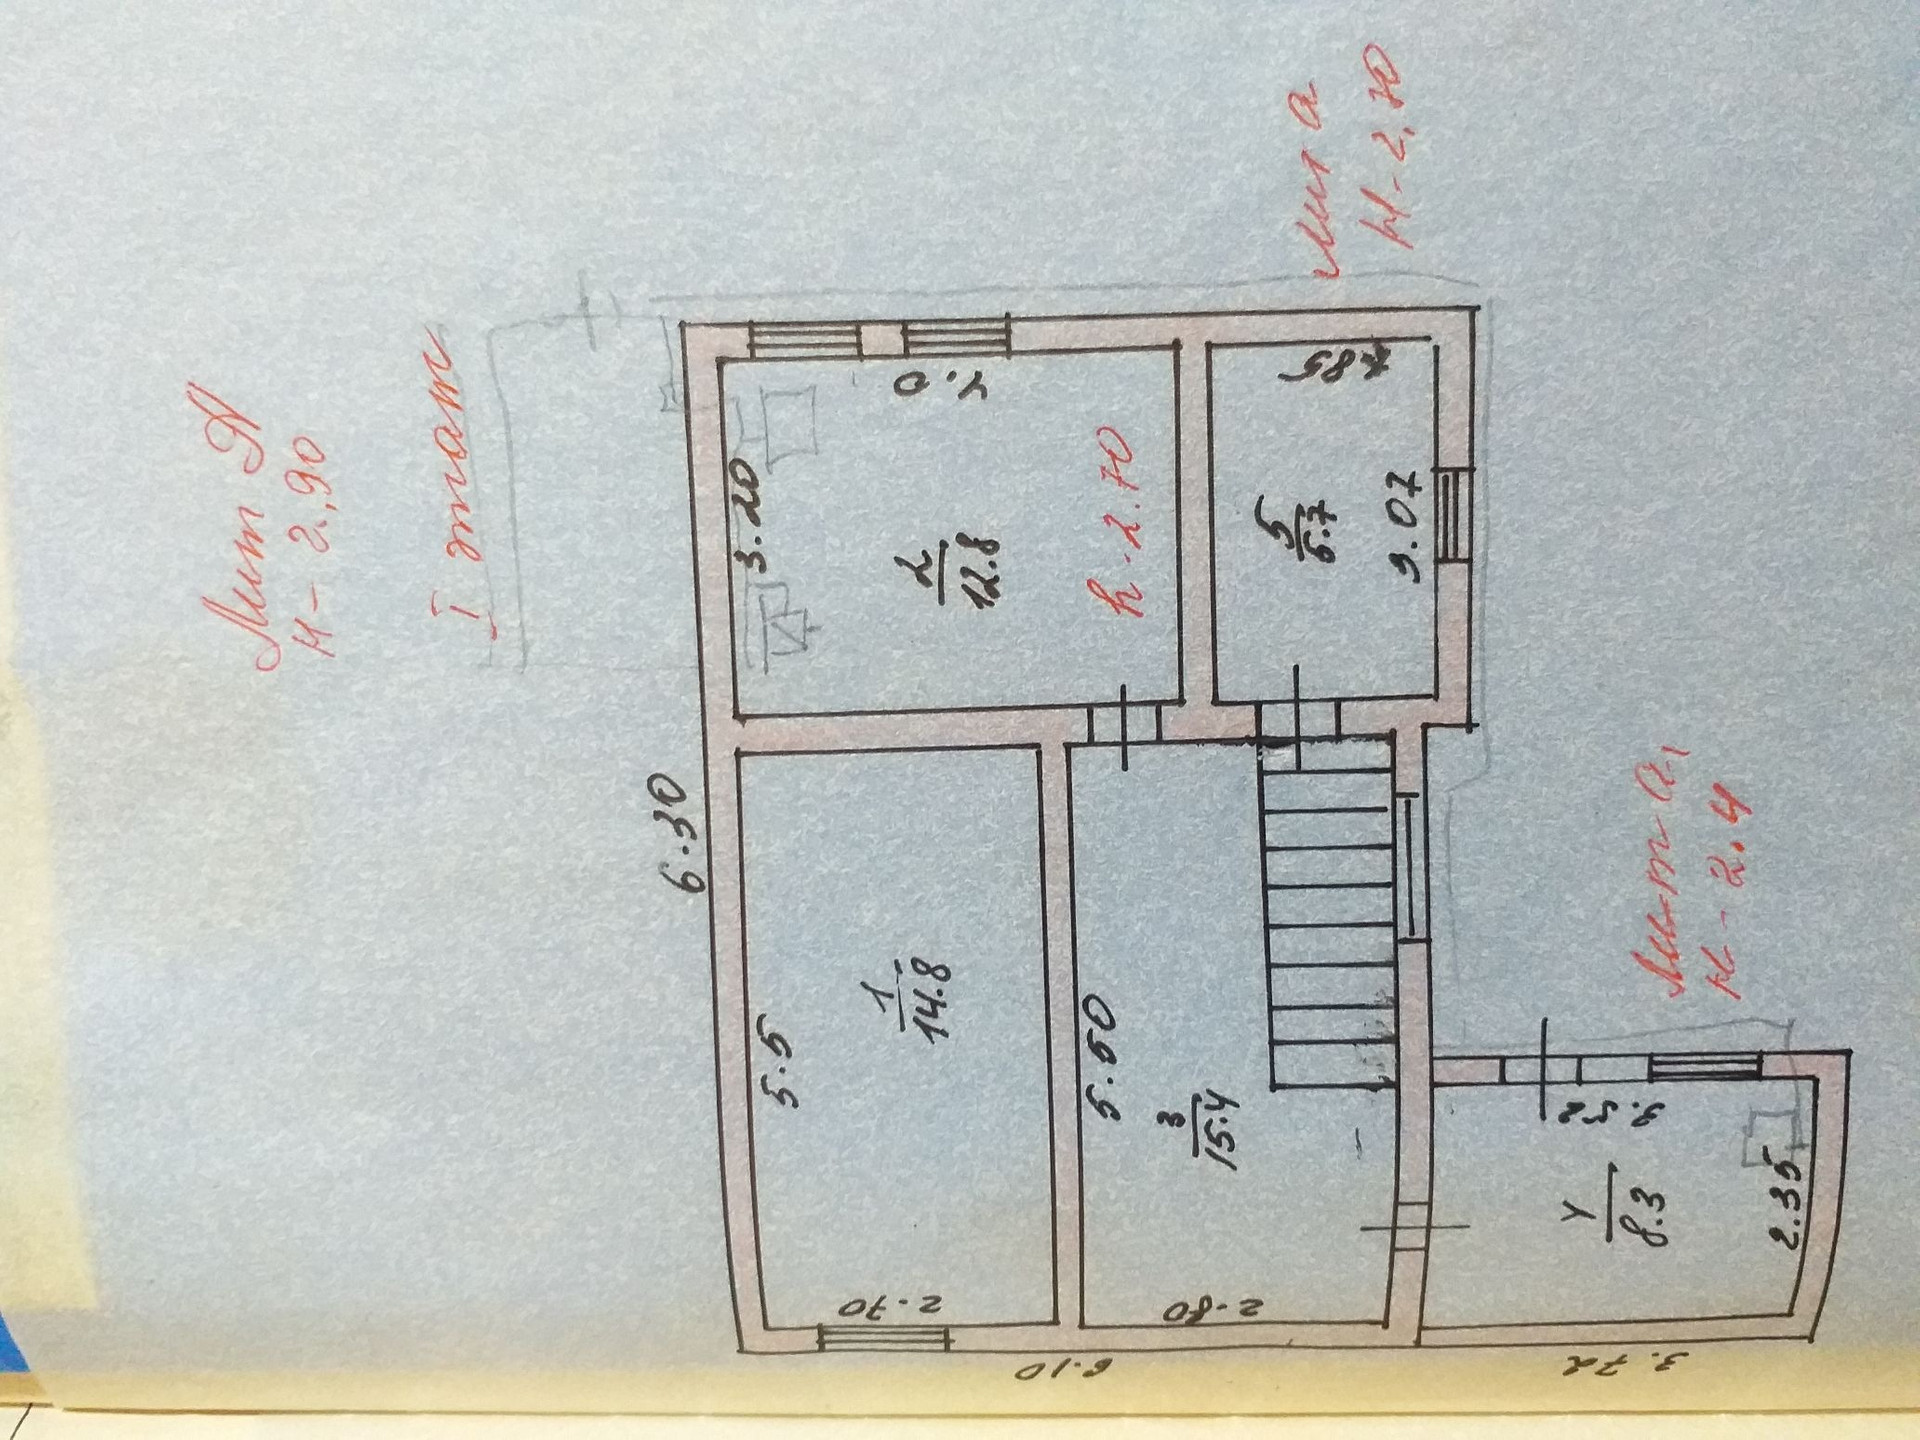 Лит А
H - 2,90
I этаж
6.30
3.20
4.0
2
12.8
h - 2.70
лит а
H - 2,70
5
5.7
5.5
1
14.8
2.70
5.50
3
15.4
2.80
6.10
Лит а1
H - 2.4
4
8.3
2.35
3.72